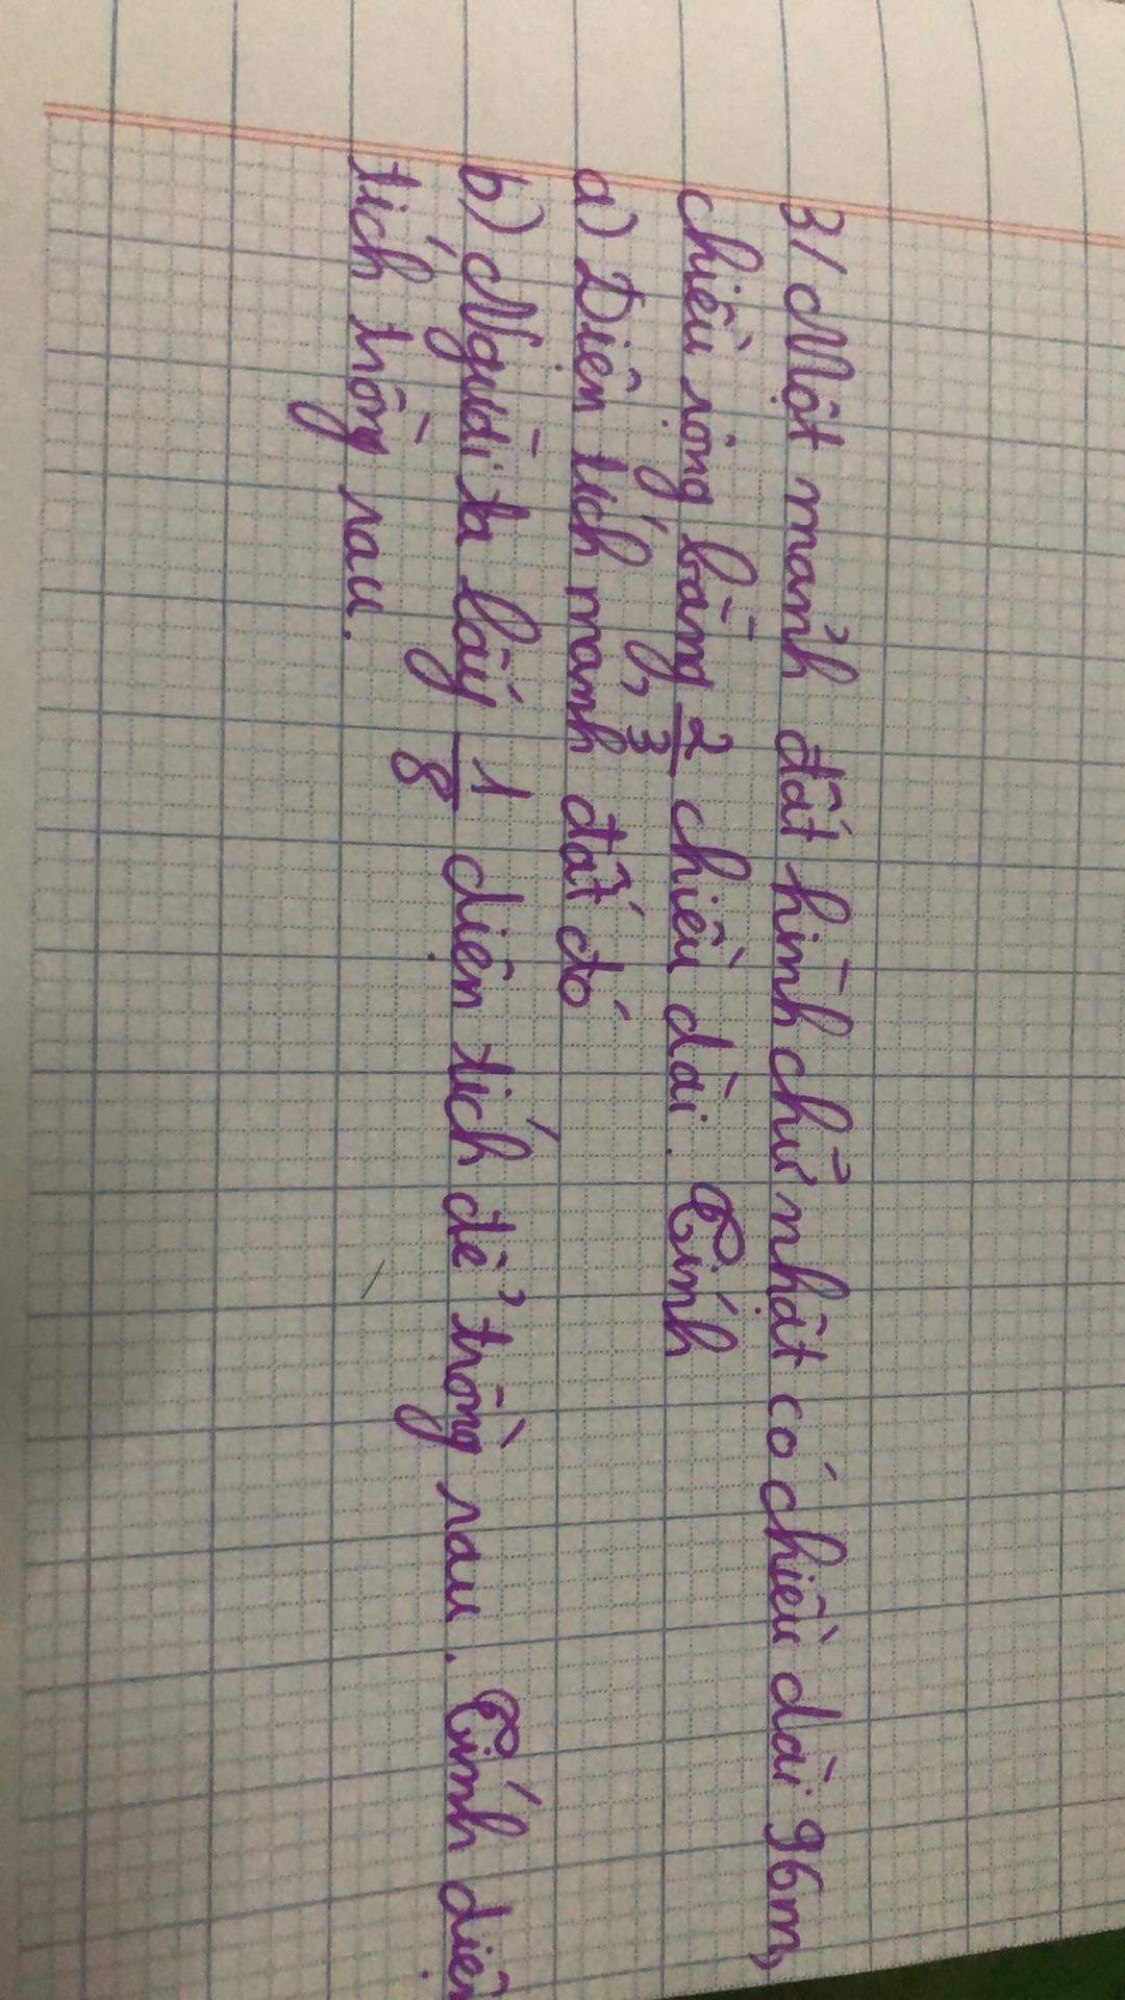 3/ Một mảnh đất hình chữ nhật có chiều dài 96m,
chiều rộng bằng 2/3 chiều dài. Tính
a) Diện tích mảnh đất đó
b) Người ta lấy 1/8 diện tích để trồng rau. Tính diện
tích trồng rau.